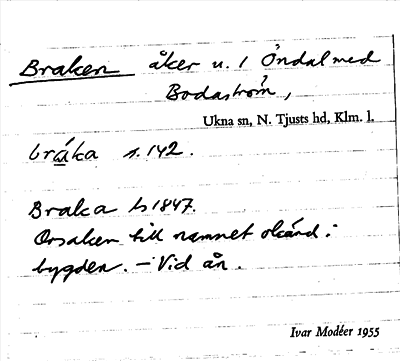 Braken åker u. 1 Öndal med
Bodaström,
Ukna sn, N. Tjusts hd, Klm. l.
bråka s. 142.
Braka b 1847.
Orsaken till namnet okänd i
bygden. – Vid ån.
Ivar Modéer 1955